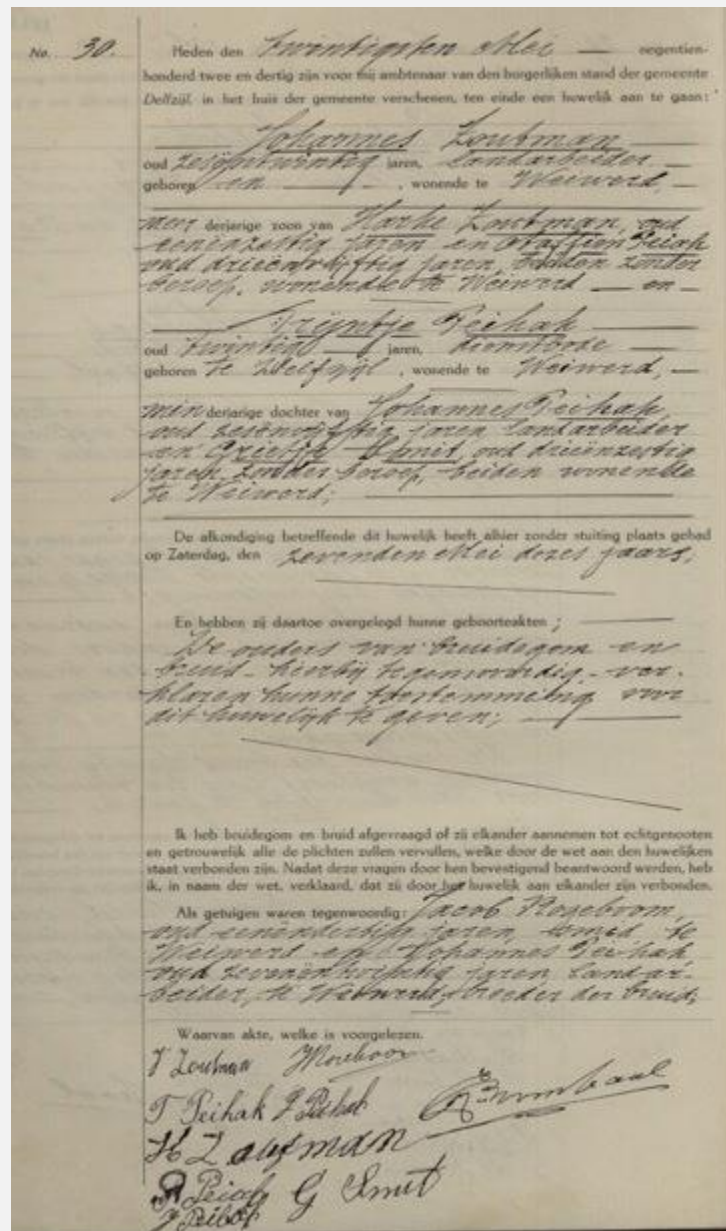 No. 30.
Heden den twintigsten Mei — negentien-
honderd twee en dertig zijn voor mij ambtenaar van den burgerlijken stand der gemeente
Delfzijl, in het huis der gemeente verschenen, ten einde een huwelijk aan te gaan:
Johannes Zoutman
oud zesentwintig jaren, landarbeider —
geboren en — , wonende te Weiwerd, —
meerderjarige zoon van Harke Zoutman, oud
eenenzestig jaren en Peiak
oud drieënvijftig jaren, beiden zonder
beroep, wonende te Weiwerd — en —
Trijntje Peihak
oud twintig — jaren, dienstbode —
geboren te Delfzijl , wonende te Weiwerd, —
minderjarige dochter van Johannes Peihak,
oud zesenvijftig jaren landarbeider
en Grietje Smit, oud drieënzestig
jaren, zonder beroep, beiden wonende
te Weiwerd;
De afkondiging betreffende dit huwelijk heeft alhier zonder stuiting plaats gehad
op Zaterdag, den zevenden Mei dezes jaars.
En hebben zij daartoe overgelegd hunne geboorteakten ;
De ouders van bruidegom en
bruid - hierbij tegenwoordig - ver-
klaren hunne toestemming voor
dit huwelijk te geven;
Ik heb bruidegom en bruid afgevraagd of zij elkander aannemen tot echtgenooten
en getrouwelijk alle de plichten zullen vervullen, welke door de wet aan den huwelijken
staat verbonden zijn. Nadat deze vragen door hen bevestigend beantwoord werden, heb
ik, in naam der wet, verklaard, dat zij door het huwelijk aan elkander zijn verbonden.
Als getuigen waren tegenwoordig: Jacob Nogeboom,
oud eenëndertig jaren, smid te
Weiwerd en Johannes Peihak
oud zevenëntwintig jaren, landar-
beider, te Weiwerd, broeder der bruid;
Waarvan akte, welke is voorgelezen.
J Zoutman
T Peihak J Peihak
H Zoutman
Peiak G Smit